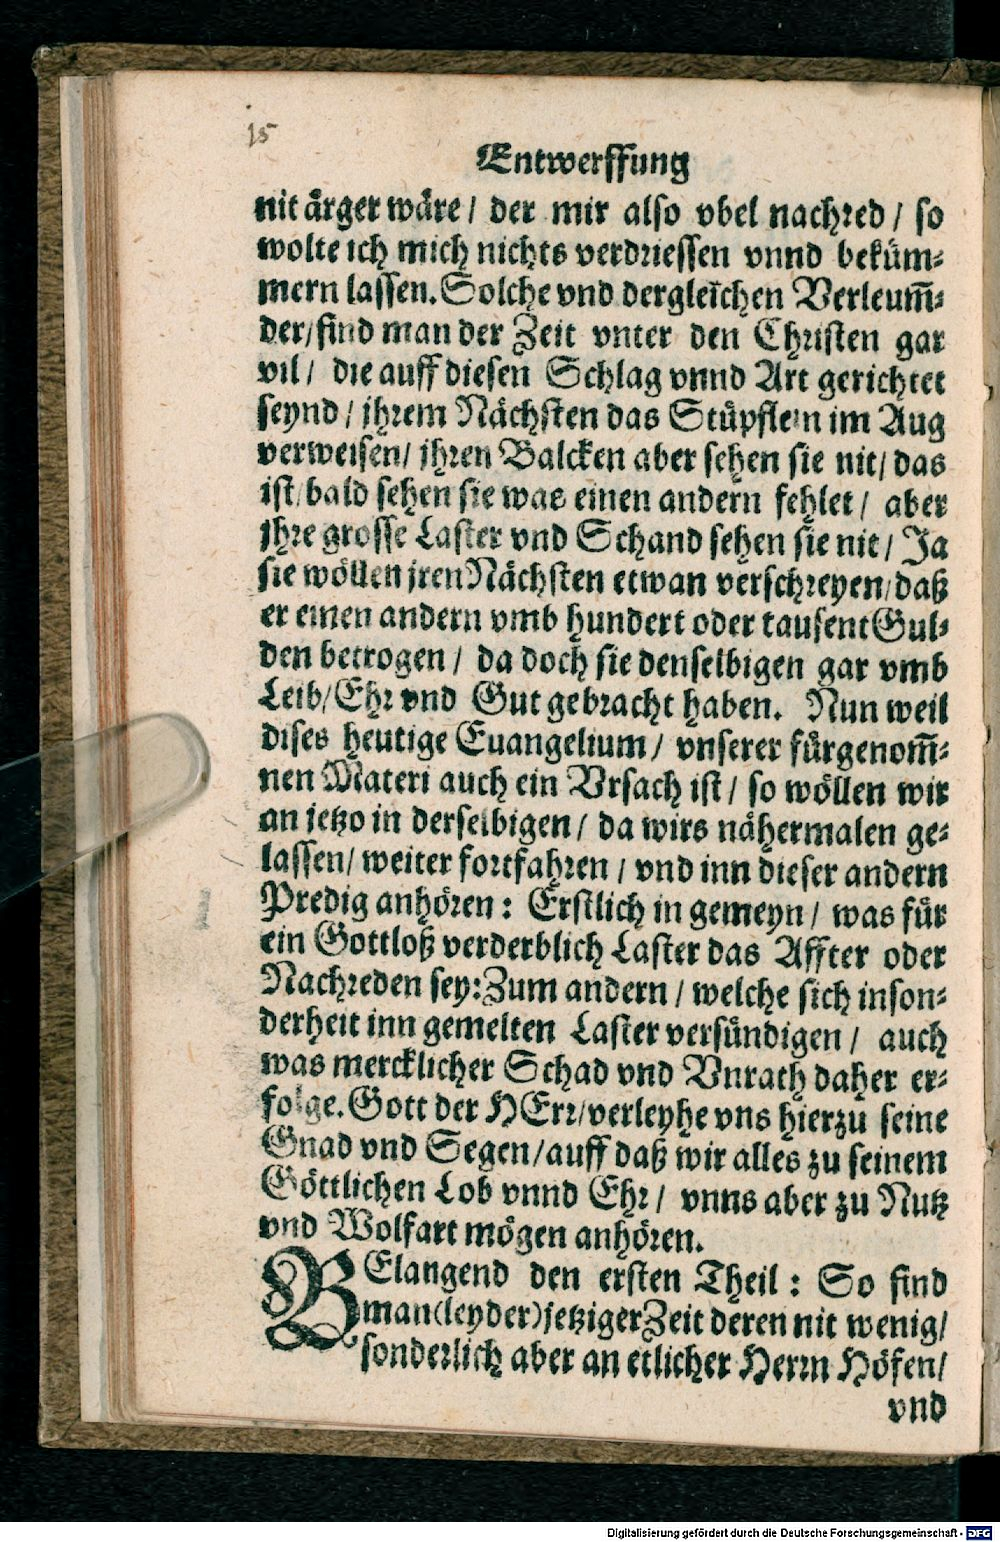 15
Entwerffung
nit årger wåre / der mir also vbel nachred / so
wolte ich mich nichts verdriessen vnnd bekům-
mern lassen. Solche vnd dergleichen Verleum̃-
der / find man der Zeit vnter den Christen gar
vil / die auff diesen Schlag vnnd Art gerichtet
seynd / jhrem Nåchsten das Stůpflein im Aug
verweisen / jhren Balcken aber sehen sie nit / das
ist / bald sehen sie was einen andern fehlet / aber
jhre grosse Laster vnd Schand sehen sie nit / Ja
sie wöllen jren Nåchsten etwan verschreyen / daß
er einen andern vmb hundert oder tausent Gul-
den betrogen / da doch sie denselbigen gar vmb
Leib / Ehr vnd Gut gebracht haben. Nun weil
dises heutige Euangelium / vnserer fůrgenom̃-
nen Materi auch ein Vrsach ist / so wöllen wir
an jetzo in derselbigen / da wirs nåhermalen ge-
lassen / weiter fortfahren / vnd inn dieser andern
Predig anhören : Erstlich in gemeyn / was fůr
ein Gottloß verderblich Laster das Affter oder
Nachreden sey: Zum andern / welche sich inson-
derheit inn gemelten Laster versůndigen / auch
was mercklicher Schad vnd Vnrath daher er-
folge. Gott der HErr / verleyhe vns hierzu seine
Gnad vnd Segen / auff daß wir alles zu seinem
Göttlichen Lob vnnd Ehr / vnns aber zu Nutz
vnd Wolfart mögen anhören.
BElangend den ersten Theil : So find
man (leyder) jetziger Zeit deren nit wenig /
sonderlich aber an etlicher Herrn Höfen /
vnd
Digitalisierung gefördert durch die Deutsche Forschungsgemeinschaft - DFG